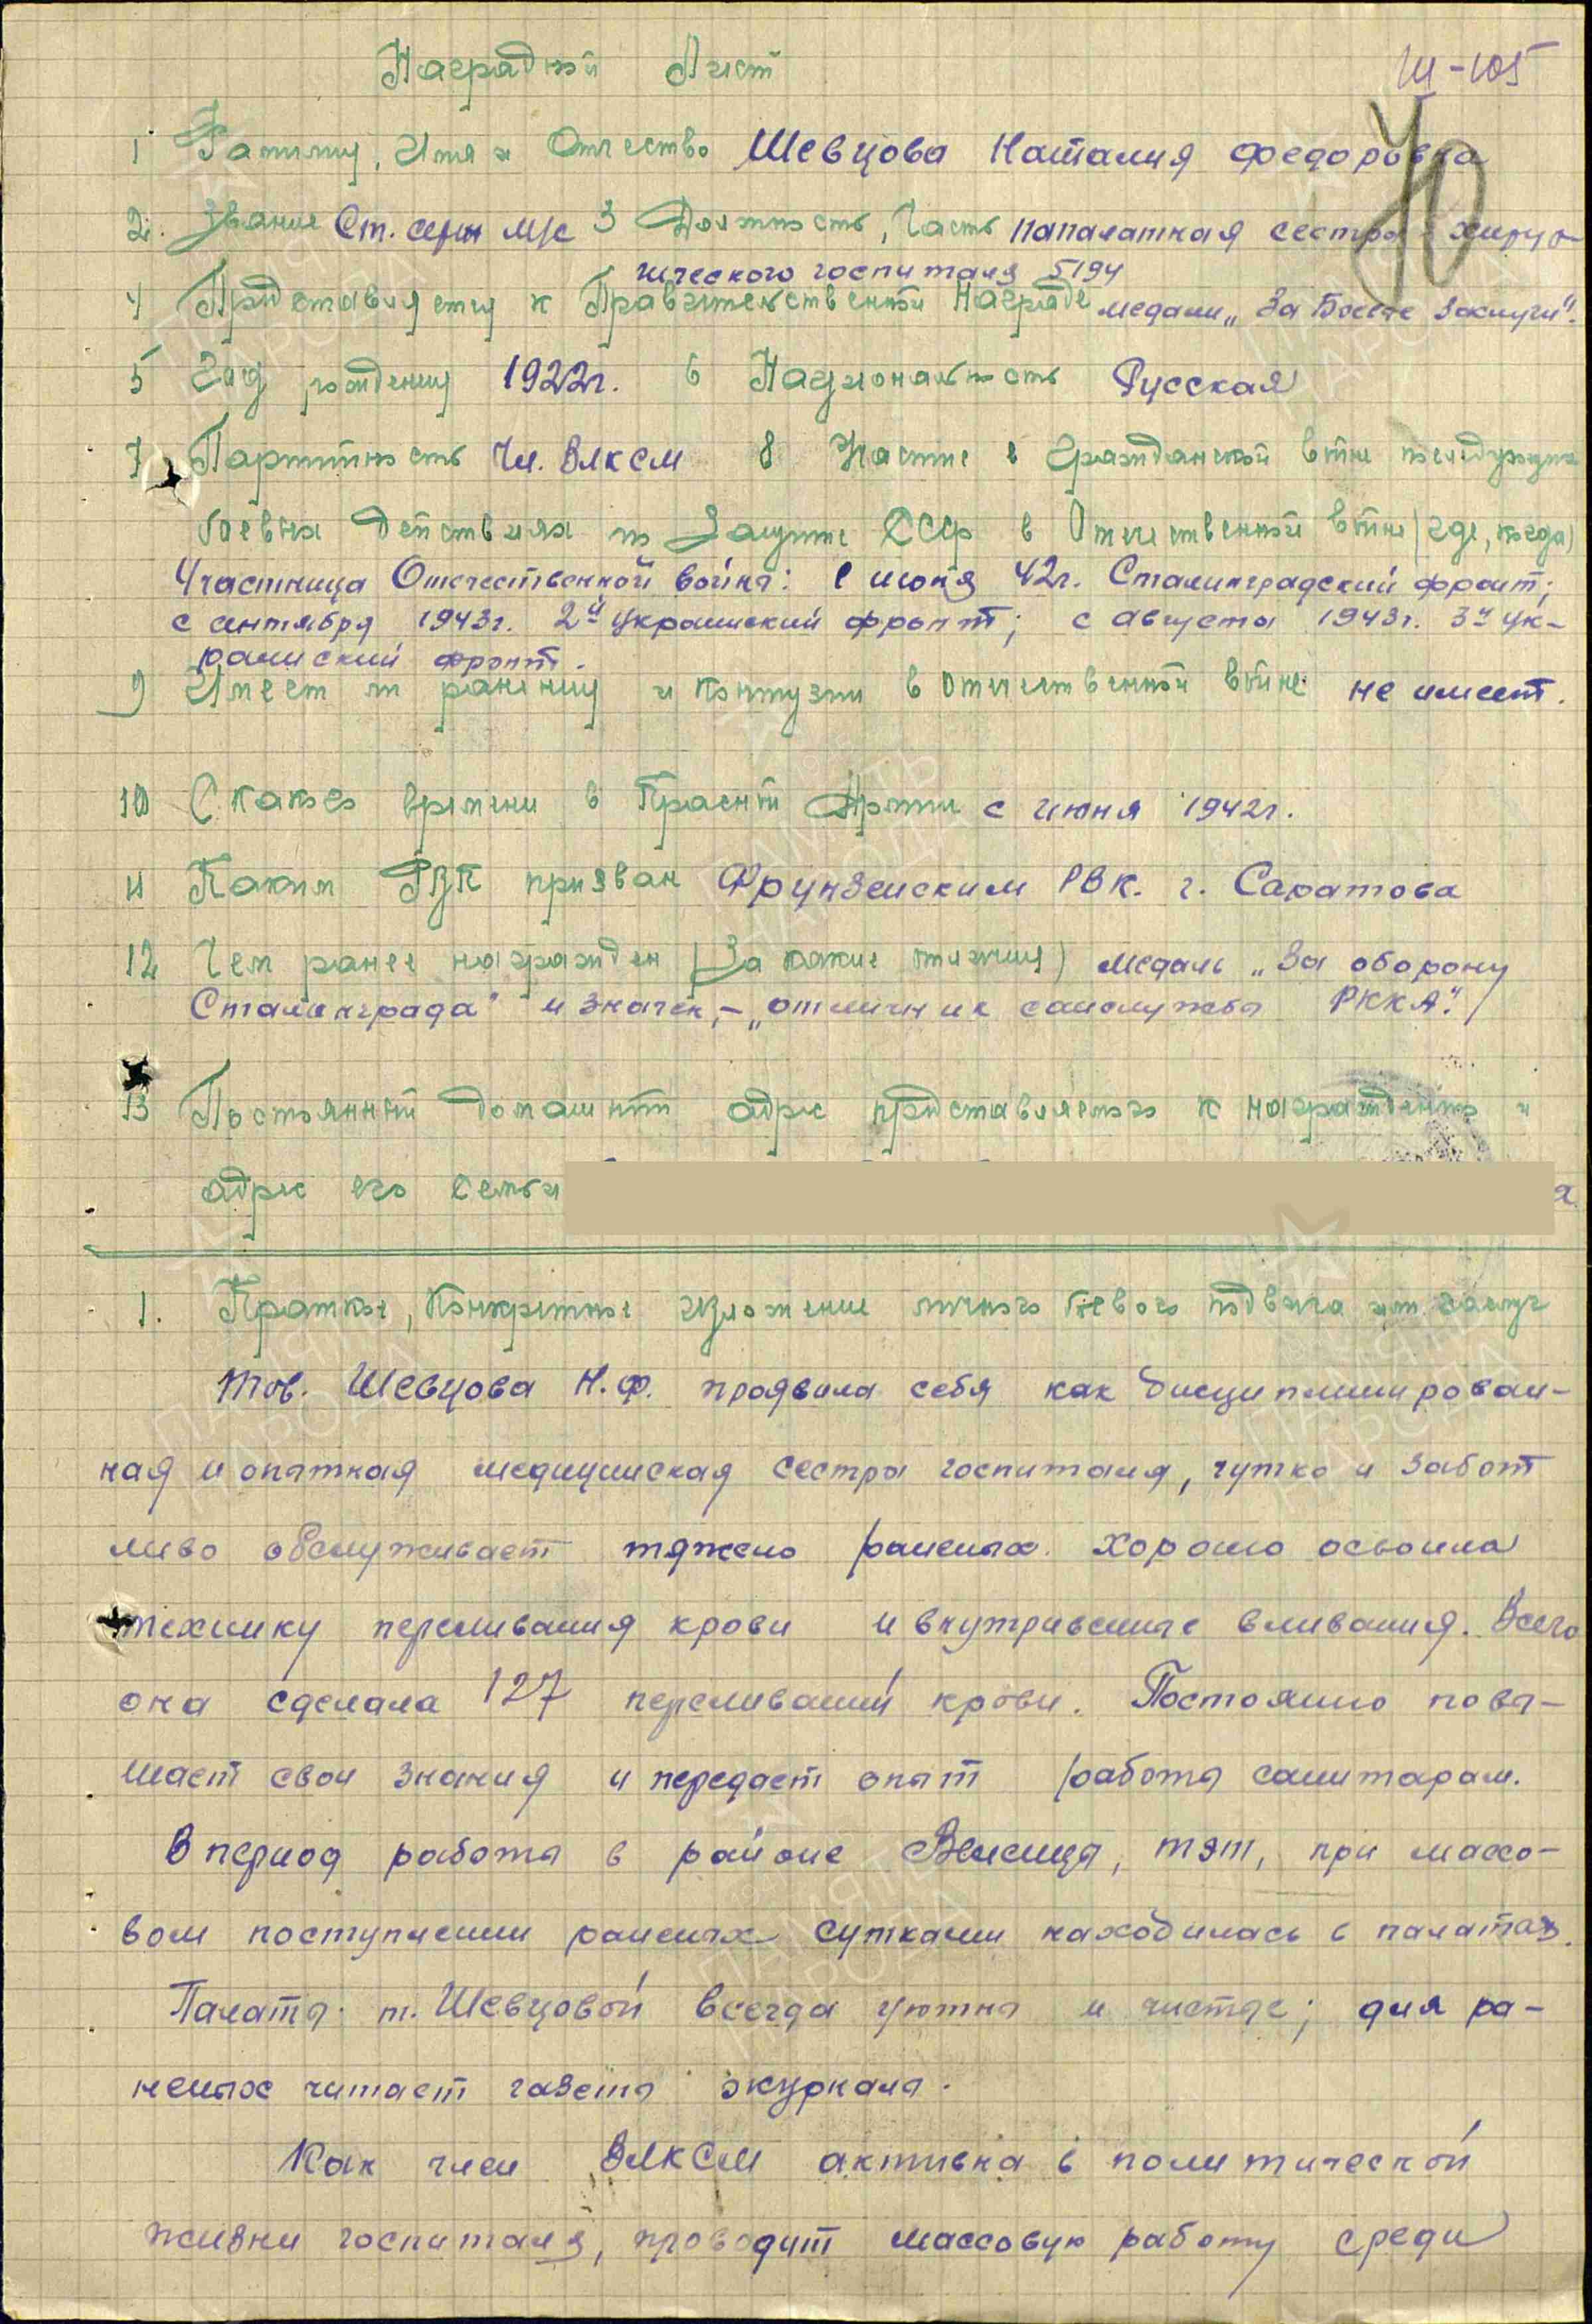 Наградной Лист
Ш-105
40
1 Фамилия, Имя и Отчество Шевцова Наталия Федоровна
2. Звание Ст. серж м/с 3 Должность, Часть папалатная сестра хирур-
гического госпиталя 5194
4 Представляется к Правительственной Награде медали „За Боевые Заслуги".
5 Год рождения 1922г. 6 Национальность Русская
7 Партийность Чл. ВЛКСМ 8 Участие в Гражданской войне последующих
боевых действиях по Защите СССР в Отечественной войне (где, когда)
Участница Отечественной войны: с июня 42г. Сталинградский фронт;
с сентября 1943г. 2й Украинский фронт; с августа 1943г. 3й Ук-
раинский фронт.
9 Имеет ли ранения и контузии в отечественной войне не имеет.
10 С какого времени в Красной Армии с июня 1942г.
11 Каким РВК призван Фрунзенским РВК. г. Саратова
12 Чем ранее награжден (За какие отличия) медаль „За оборону
Сталинграда" и значек,- „отличник санслужбы РККА"./
13 Постоянный домашний адрес представляемого к награждению и
адрес его семьи
1. Краткое, Конкретное изложение личного боевого подвига или заслуг
Тов. Шевцова Н.Ф. проявила себя как дисциплинирован-
ная и опытная медицинская сестра госпиталя, чутко и забот
ливо обслуживает тяжело раненых. Хорошо освоила
технику переливания крови и внутривенные вливания. Всего
она сделала 127 переливаний крови. Постоянно повы-
шает свои знания и передает опыт работы санитарам.
В период работы в районе Веленца, тэт, при массо-
вом поступлении раненых сутками находилась в палатах.
Палаты т. Шевцовой всегда уютны и чистые; для ра-
неных читает газеты журналы.
Как член ВЛКСМ активна в политической
жизни госпиталя, проводит массовую работу среди